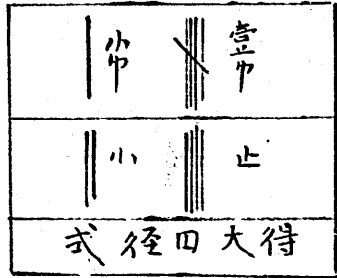 小巾
止
小
得大円径式